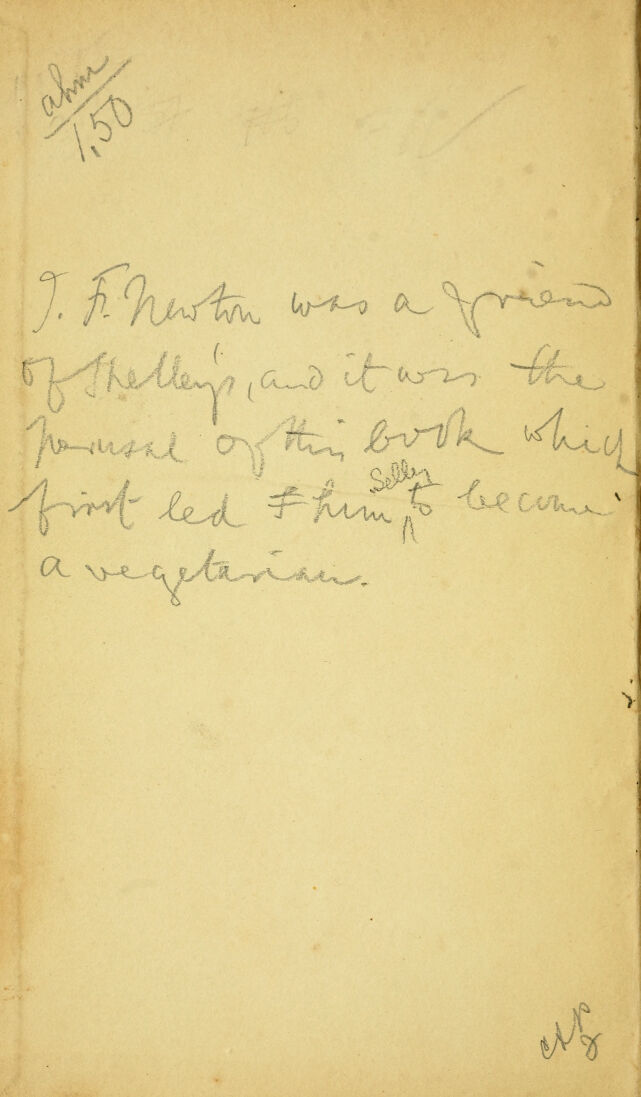 1.50
J. F. Newton was a friend
of Shelley's, and it was the
perusal of this book which
first led him Selley to become
a vegetarian.